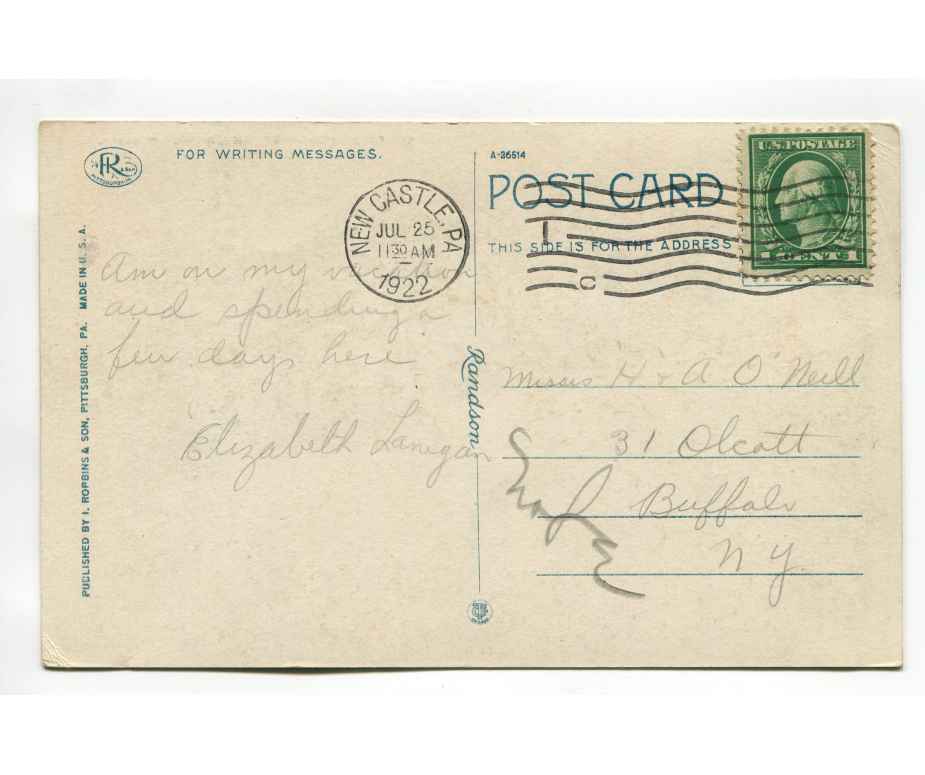 R
PITTSBURGH, PA.
FOR WRITING MESSAGES.
NEW CASTLE, PA
JUL 25
11 30 AM
1922
Am on my vacation
and spending a
few days here
Elizabeth Lanigan
PUBLISHED BY I. ROBBINS & SON, PITTSBURGH, PA. MADE IN U.S.A.
Randson
A-36614
POST CARD
THIS SIDE IS FOR THE ADDRESS
U.S. POSTAGE
1 CENTS 1
Misses H & A O'Neill
31 Olcott
Buffalo
N Y.